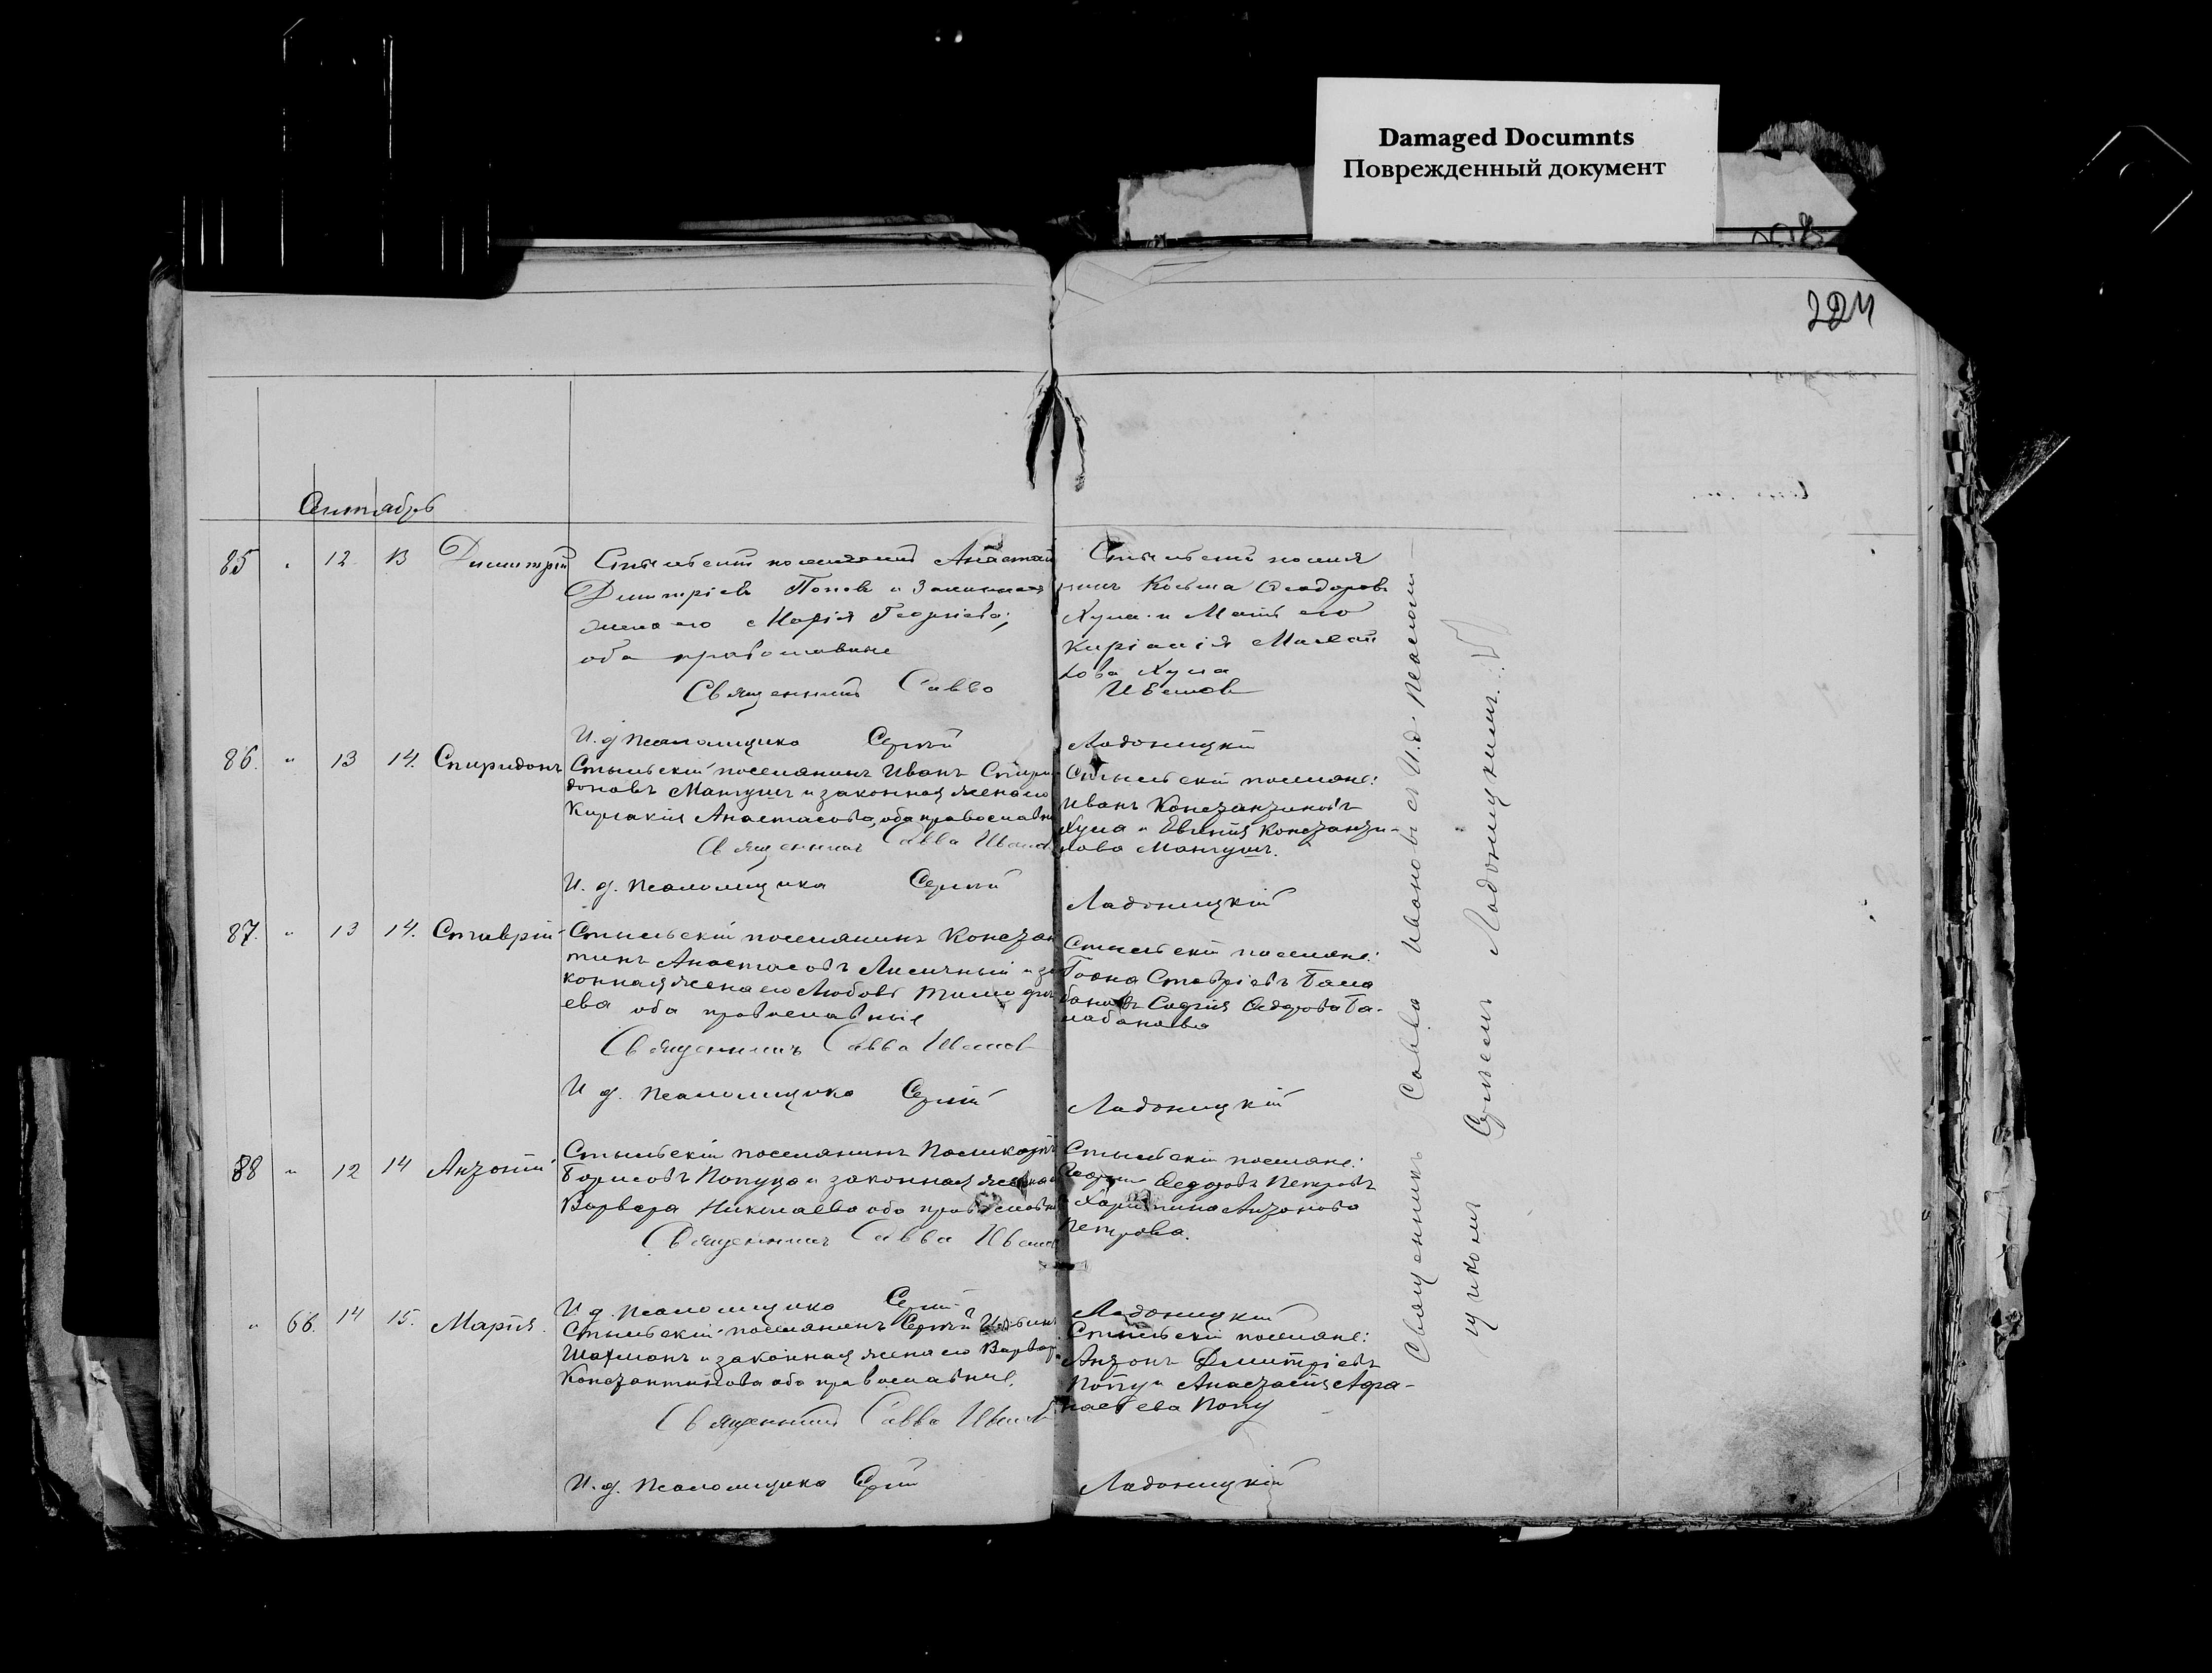 Damaged Documnts
Поврежденный документ
224
Сентябрь
85 " 12 13 Димитрій
Стыльскій поселянинъ Анастасій
Димитріевъ Поповъ и законная
жена его Марія Георгіева,
оба православные
Священникъ Савва
И. д. псаломщика Сергій
Стыльскій поселя
нинъ Косьма Ѳеодоровъ
Хула и Мать его
Киріакія
Хула
Ивановъ
Ладоницкій
86. " 13 14. Спиридонъ
Стыльскій поселянинъ Иванъ Спири
доновъ Мангушъ и законная жена его
Киріакія Анастасова, оба православные
Священникъ Савва Ивановъ
И. д. псаломщика Сергій
Стыльскій поселяне:
Иванъ Константиновъ
Хула и Евгенія Константи-
нова Мангушъ.
Ладоницкій
87. " 13 14. Ставрій
Стыльскій поселянинъ Констан
тинъ Анастасовъ и за
конная жена его Любовь
ева оба православные
Священникъ Савва Ивановъ
И. д. псаломщика Сергій
Стыльскій поселяне:
Ставріевъ Бала
бановъ Софія Ѳедорова Ба-
лабанова
Ладоницкій
88 " 12 14 Антоній
Стыльскій поселянинъ Поликарпъ
Борисовъ Папуца и законная жена его
Варвара Николаева оба православные
Священникъ Савва Ивановъ
И. д. псаломщика Сергій
Стыльскій поселяне:
Георгій Ѳедоровъ Петровъ
и Харитина Антонова
Петрова.
Ладоницкій
" 66. 14 15. Марія.
Стыльскій поселянинъ Сергій
Шахманъ и законная жена его Варвара
Константинова оба православные.
Священникъ Савва Ивановъ
И. д. псаломщика Сергій
Стыльскій поселяне:
Антонъ Димитріевъ
Попу и Анастасія Афа-
насьева Попу
Ладоницкій
Священникъ Савва Ивановъ съ И. д. псалом-
щикомъ Сергіемъ Ладоницкимъ.